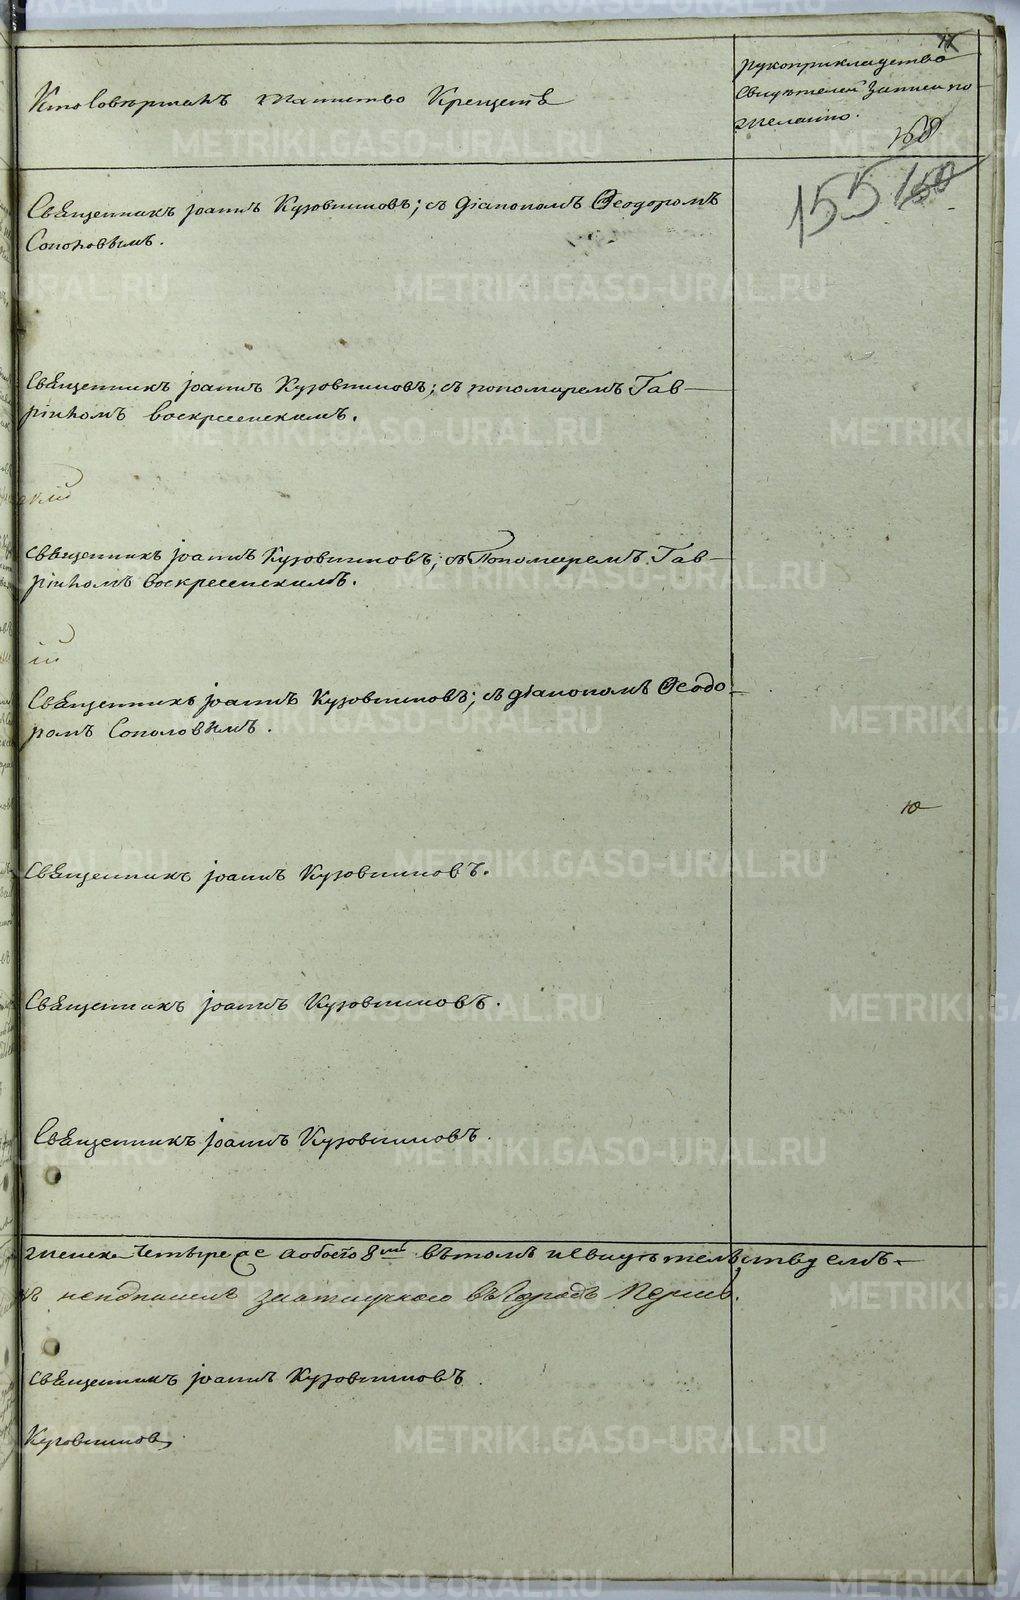 Кто Совершалъ таинство Крещенія
рукоприкладство
свидѣтелей записи по
желанію.
158
155 150
Священникъ Іоаннъ Кузовниковъ; съ діакономъ Ѳеодоромъ
Соколовымъ.
Священникъ Іоаннъ Кузовниковъ; съ пономаремъ Гав-
ріиломъ Воскресенскимъ.
Священникъ Іоаннъ Кузовниковъ; съ Пономаремъ Гав-
ріиломъ Воскресенскимъ.
ій
Священникъ Іоаннъ Кузовниковъ; съ діакономъ Ѳеодо-
ромъ Соколовымъ.
ю
Священникъ Іоаннъ Кузовниковъ.
Священникъ Іоаннъ Кузовниковъ.
Священникъ Іоаннъ Кузовниковъ.
женска четыре а обоего 8 мь въ томъ и свидѣтельствуемъ
въ Городѣ Перми.
Священникъ Іоаннъ Кузовниковъ.
Кузовниковъ
METRIKI.GASO-URAL.RU